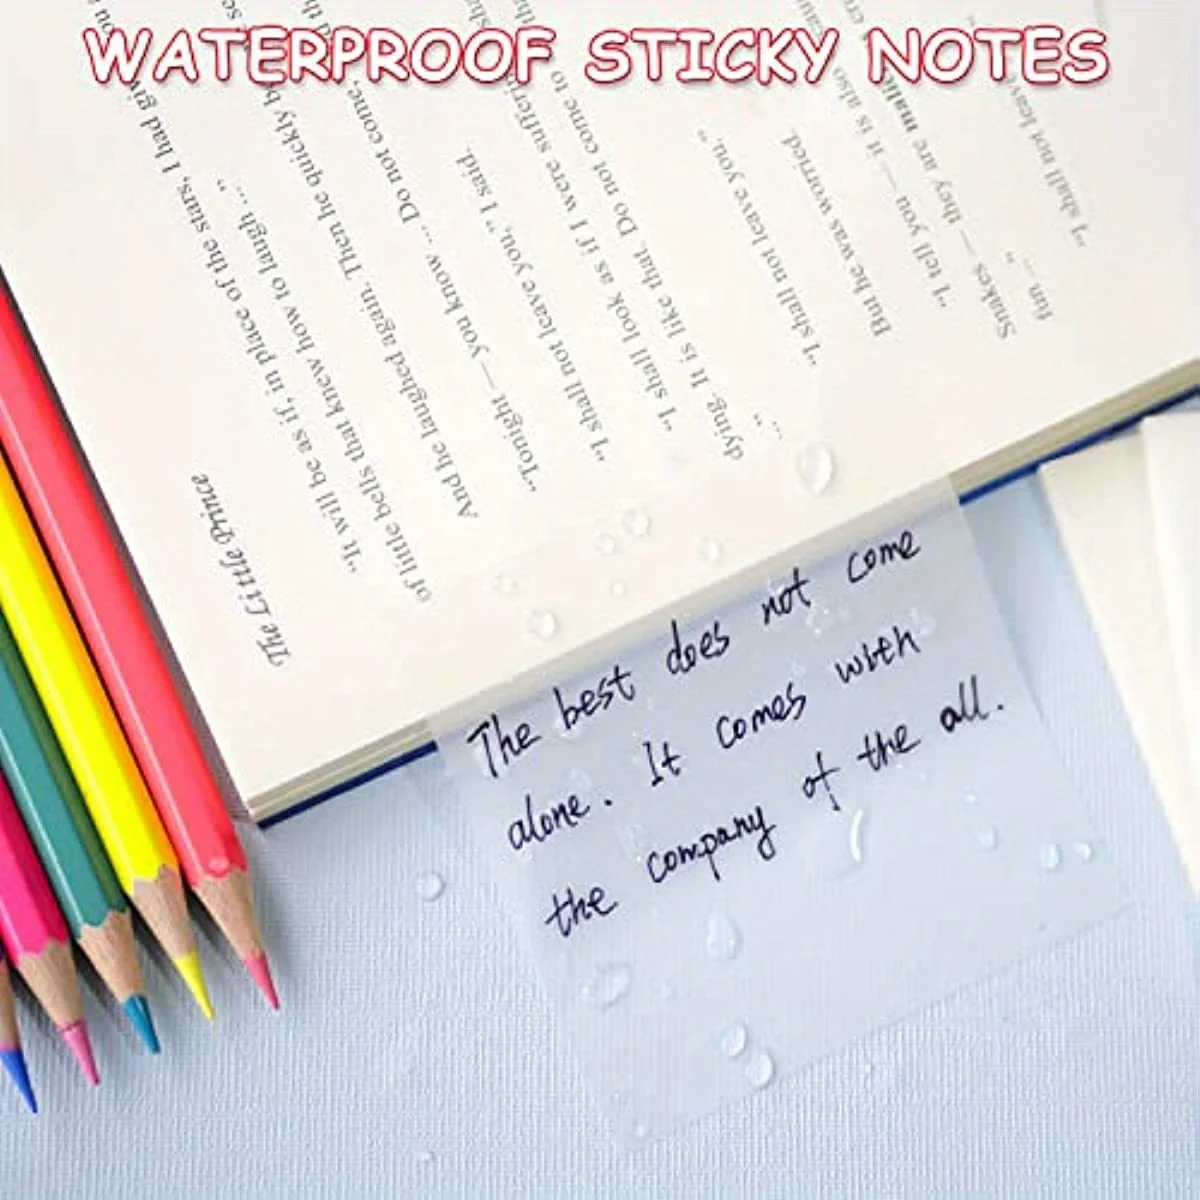 WATERPROOF STICKY NOTES
The Little Prince
"It will be as if, in place of the stars, I had given you
of little bells that knew how to laugh ..."
And he laughed again. Then he quickly
"Tonight — you know ... Do not come,
"I shall not leave you," I said.
"I shall look as if I were
dying. It is like that. Do not come to
..."
"I shall not leave you."
But he was worried.
"I tell you — it is also
Snakes — they are
fun ..."
"I shall not leave
The best does not come
alone. It comes with
the company of the all.